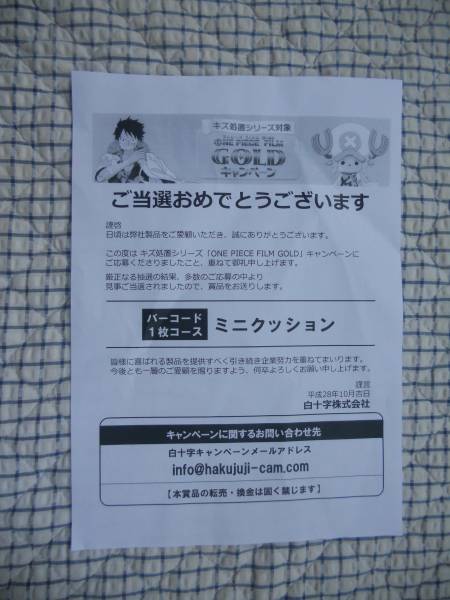 キズ処置シリーズ対象
ONE PIECE FILM
GOLD
キャンペーン
ご当選おめでとうございます
謹啓
日頃は弊社製品をご愛顧いただき、誠にありがとうございます。
この度は キズ処置シリーズ「ONE PIECE FILM GOLD」キャンペーンに
ご応募くださりましたこと、重ねて御礼申し上げます。
厳正なる抽選の結果、多数のご応募の中より
見事ご当選されましたので、賞品をお送りします。
バーコード
1枚コース
ミニクッション
皆様に喜ばれる製品を提供すべく引き続き企業努力を重ねてまいります。
今後とも一層のご愛顧を賜りますよう、何卒よろしくお願い申し上げます。
謹言
平成28年10月吉日
白十字株式会社
キャンペーンに関するお問い合わせ先
白十字キャンペーンメールアドレス
info@hakujuji-cam.com
【本賞品の転売・換金は固く禁じます】